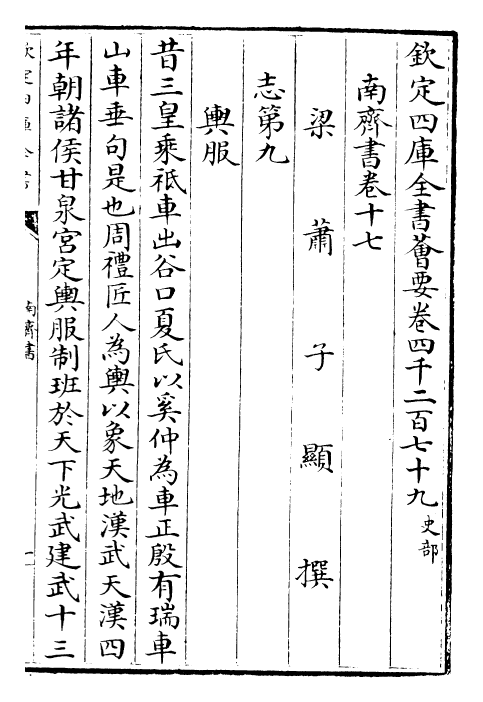 欽定四庫全書薈要卷四千二百七十九 史部
南齊書卷十七
梁蕭子顯撰
志第九
輿服
昔三皇乘祇車出谷口夏氏以奚仲為車正殷有瑞車
山車垂句是也周禮匠人為輿以象天地漢武天漢四
年朝諸侯甘泉宮定輿服制班於天下光武建武十三
南齊書